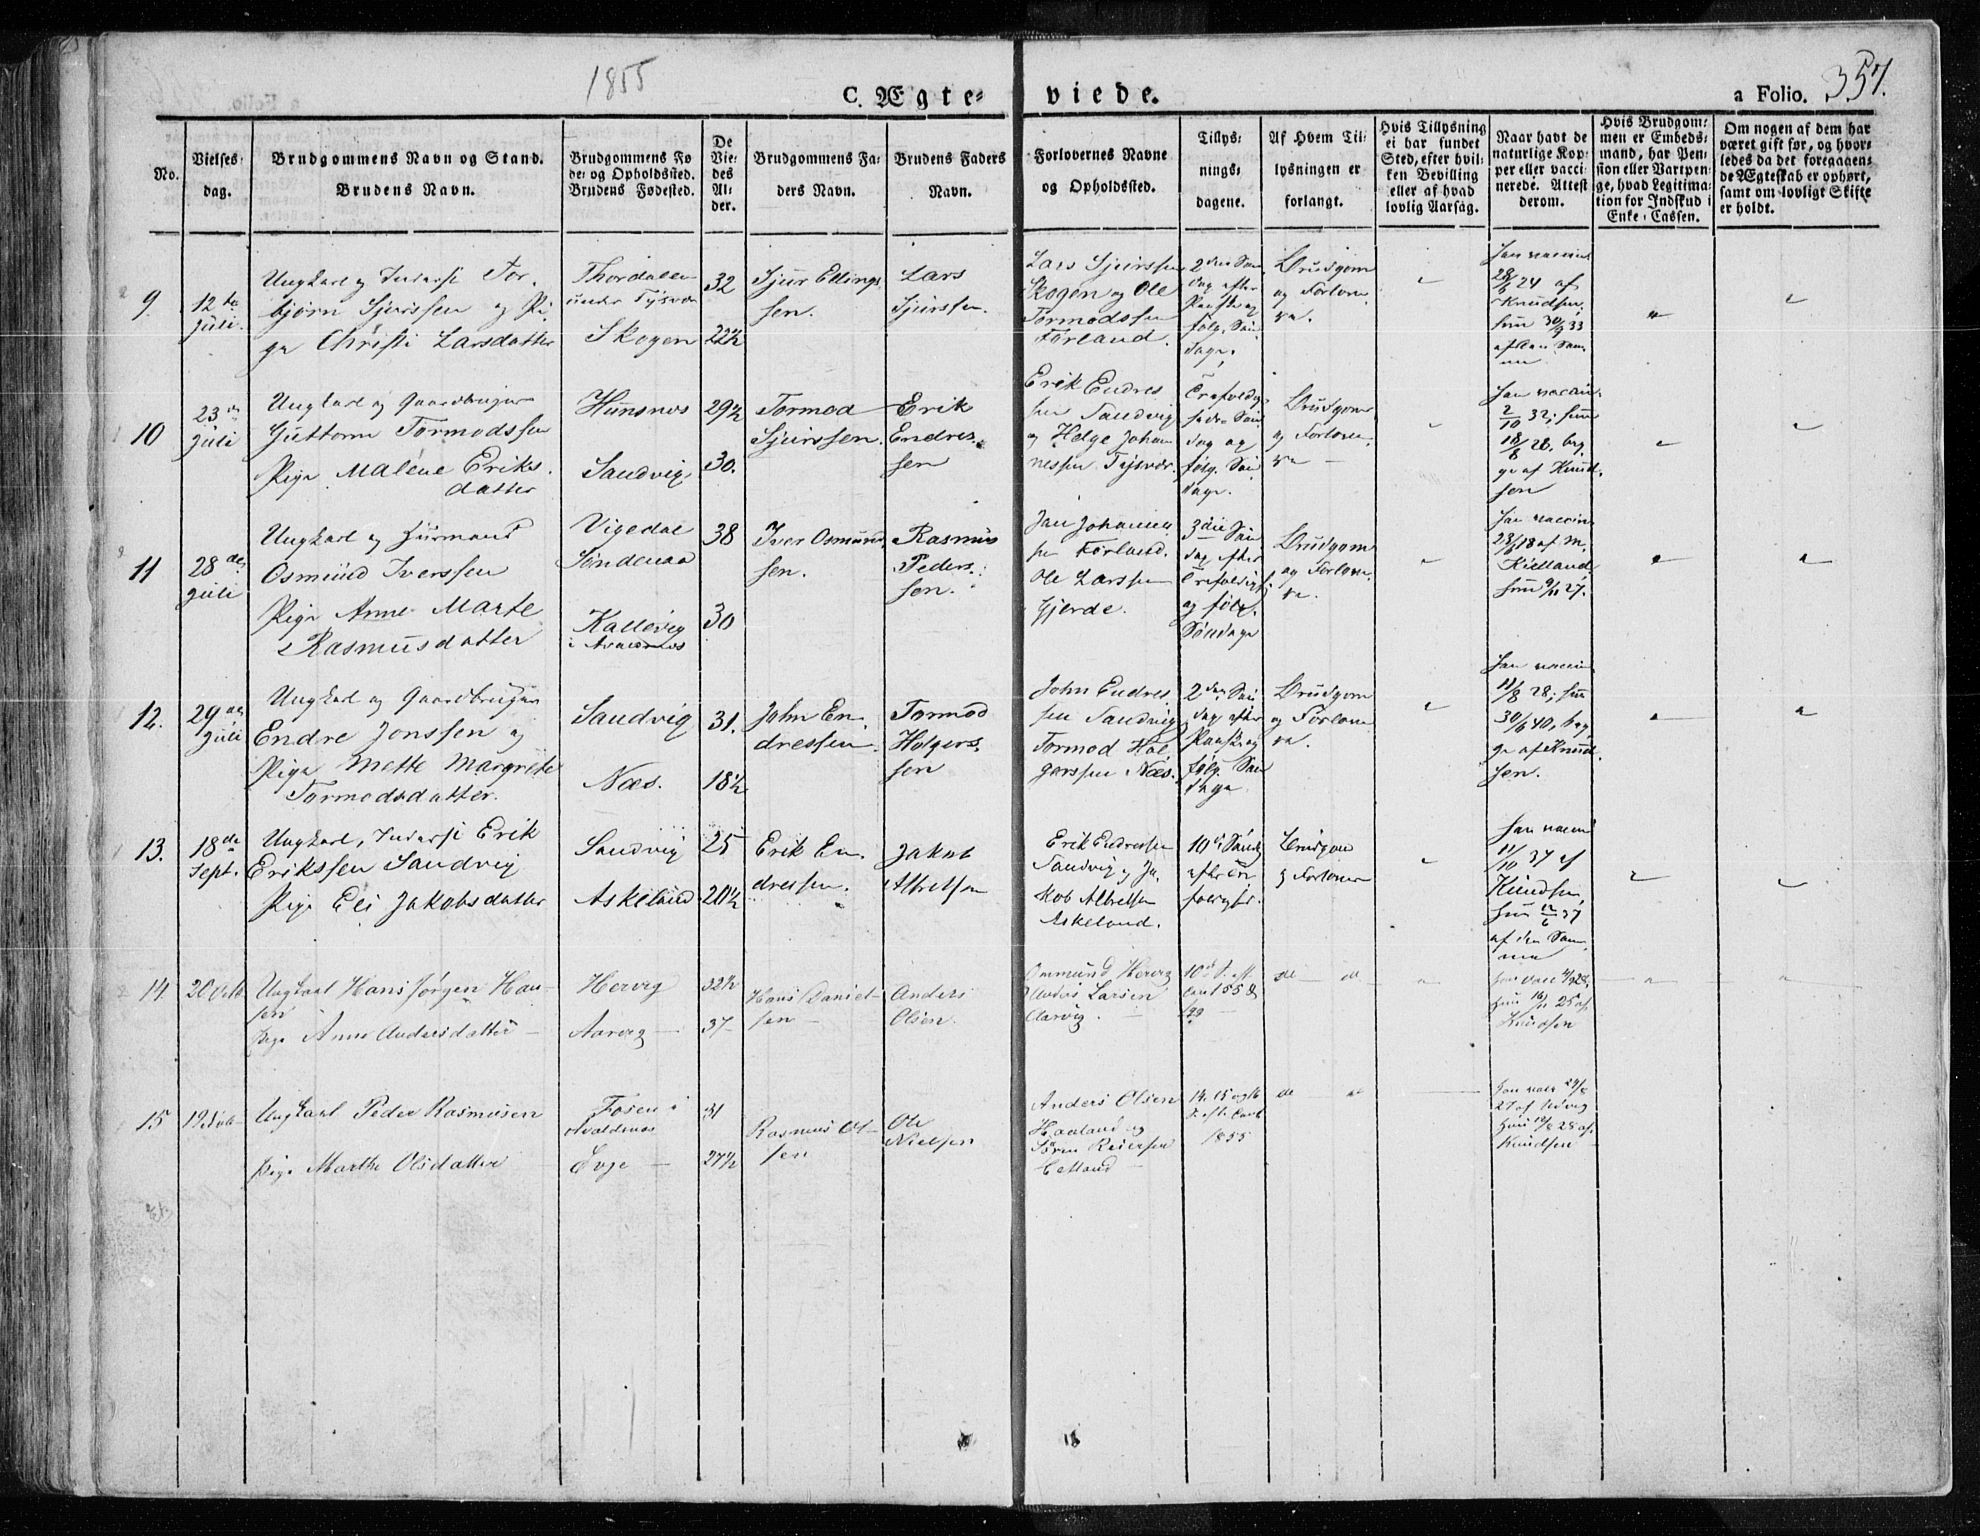 1855
C. Ægte- viede.
a Folio. 357.
No.
Vielses-
dag.
Brudgommens Navn og Stand.
Brudens Navn.
Brudgommens Fø
de- og Opholdssted.
Brudens Fødested.
De
Vie-
des
Al-
der.
Brudgommens Fa-
ders Navn.
Brudens Faders
Navn.
Forlovernes Navne
og Opholdssted.
Tillys-
nings-
dagene.
Af Hvem Til-
lysningen er
forlangt.
Hvis Tillysning
ei har fundet
Sted, efter hvil-
ken Bevilling
eller af hvad
lovlig Aarsag.
Naar havt de
naturlige Kop-
per eller vacci-
nerede. Attest
derom.
Hvis Brudgom-
men er Embeds-
mand, har Pen-
sion eller Vartpen-
ge, hvad Legitima-
tion for Indskud i
Enke-Cassen.
Om nogen af dem har
været gift før, og hvor-
ledes da det foregaaen-
de Ægteskab er ophørt,
samt om lovligt Skifte
er holdt.
9.
12te
Juli.
Ungkarl og Inderst Tor-
bjørn Sjurssen og Pi-
ge Christi Larsdatter
Thordalen
under Tysvær
Skogen
32
22½
Sjur Ellings
sen.
Lars
Sjurssen.
Lars Sjurssen
Skogen og Ole
Tormodssen
Førland.
2den Søn
dag efter
Paaske og
følg. Søn
dage.
Brudgom
og Forlove
re.
han vaccin
28/6 24 af
Knudsen,
hun 30/9 33
af den Sam
me
10
23de
Juli
Ungkarl og Gaardbruger
Guttorm Tormodssen
Pige Malene Eriks-
datter
Hunsnes
Sandvig
29½
30.
Tormod
Sjurssen.
Erik
Endres-
sen
Erik Endres
sen Sandvig
og Helge Johan
nessen Tysvær.
Trefoldig
heds Søn
dag og
følg. Søn
dage.
Brudgom
og Forlove-
re
han vaccin.
2/10 32; hun
18/8 28, beg-
ge af Knud-
sen
11
28de
Juli
Ungkarl og Huusmand
Osmund Iverssen
Pige Anne Marte
Rasmusdatter
Vigedal
Søndenaa
Kallevig
i Avaldsnes
38
30
Iver Osmund
sen.
Rasmus
Peders-
sen.
Jan Johannes
sen Førland.
Ole Larssen
Gjerde.
3die Søn
dag efter
Trefoldigh.
og følg.
Søndage
Brudgom
og Forlove-
re.
han vaccin
28/6 18 af M.
Kielland
hun 9/11 27.
12.
29de
Juli
Ungkarl og Gaardbruger
Endre Jonssen og
Pige Mette Margrete
Tormodsdatter.
Sandvig
Næs.
31.
18½
John En-
dressen.
Tormod
Holgers-
sen
John Endres
sen Sandvig
Tormod Hol
gerssen Næs.
2den Søn
dag efter
Paaske og
følg. Søn
dage
Brudgom
og Forlove
re.
han vaccin
11/8 28; hun
30/6 40, beg
ge af Knud-
sen.
13.
18de
Sept.
Ungkarl, Inderst Erik
Erikssen Sandvig
Pige Eli Jakobsdatter
Sandvig
Askeland
25
20½
Erik En-
dressen.
Jakob
Albretsen
Erik Endressen
Sandvig og Ja-
kob Albretsen
Askeland.
10de Sønd
efter Tre
foldighe.
Brudgom
og Forlover
han vaccin
11/10 37 af
Knudsen,
hun 12/6 37
af den Sam
me
14.
20 Octb
Ungkarl Hans Jørgen Han-
sen
Pige Anne Andersdatter
Hervig
Aarvig
32½
37
Hans Daniel-
sen
Anders
Olsen.
Ommund Hervig
Anders Larsen
Aarvig.
de de
Knudsen
15
Ungkarl Peder Rasmusen
Pige Marthe Olsdatter
Fosen i
Avaldsnes
Evje
31
27½
Rasmus Ol-
sen
Ole
Nielsen
Anders Olsen
Haaland og
Søren Reiersen
14. 15 og 16
1855
de de
Knudsen